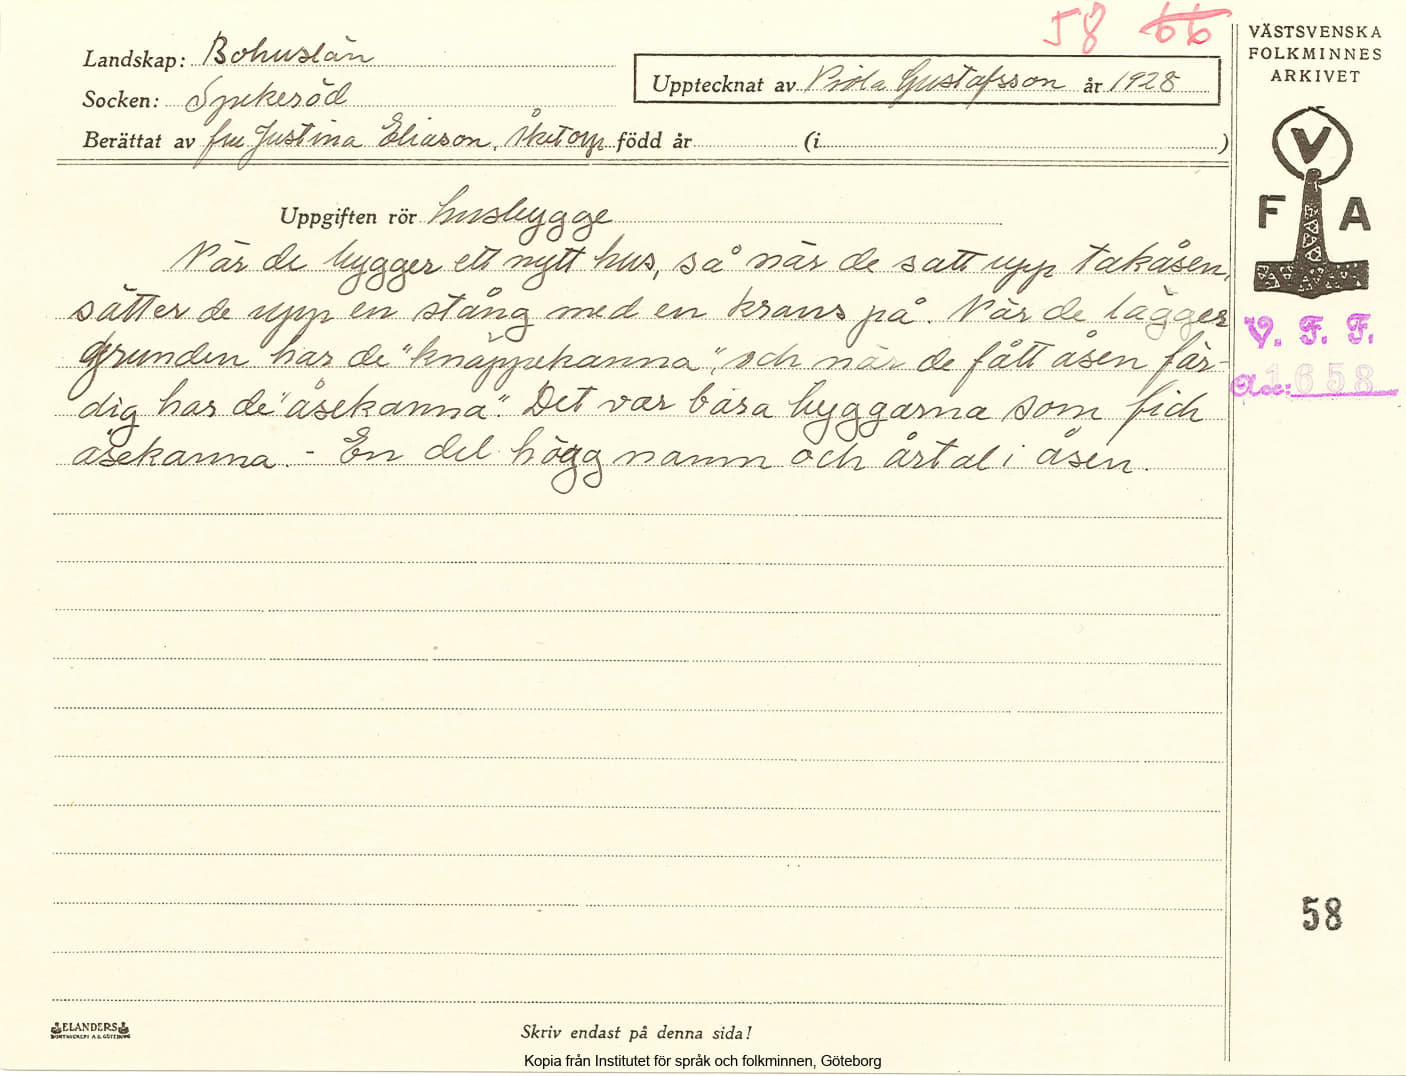 58 66
Landskap: Bohuslän
Socken: Spekeröd
Upptecknat av Viola Gustafsson år 1928
Berättat av fru Justina Eliason, Åketorp född år (i )
Uppgiften rör husbygge
När de bygger ett nytt hus, så när de satt upp takåsen,
sätter de upp en stång med en krans på. När de lägger
grunden har de "knäppekanna", och när de fått åsen fär-
dig har de "åsekanna". Det var bara byggarna som fick
åsekanna. - En del högg namn och årtal i åsen.
VÄSTSVENSKA
FOLKMINNES
ARKIVET
V
F A
V. F. F.
Acc: 1658
58
ELANDERS
BOKTRYCKERI A.B. GÖTEBORG
Skriv endast på denna sida!
Kopia från Institutet för språk och folkminnen, Göteborg